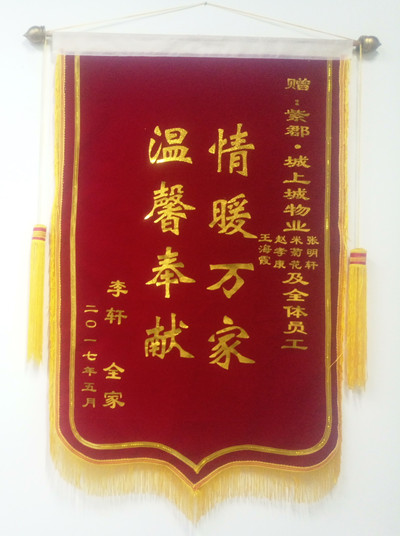 赠：紫郡·城上城物业
张明轩
米菊花
赵孝康
王海霞
及全体员工
情暖万家
温馨奉献
李轩 全家
二〇一七年五月